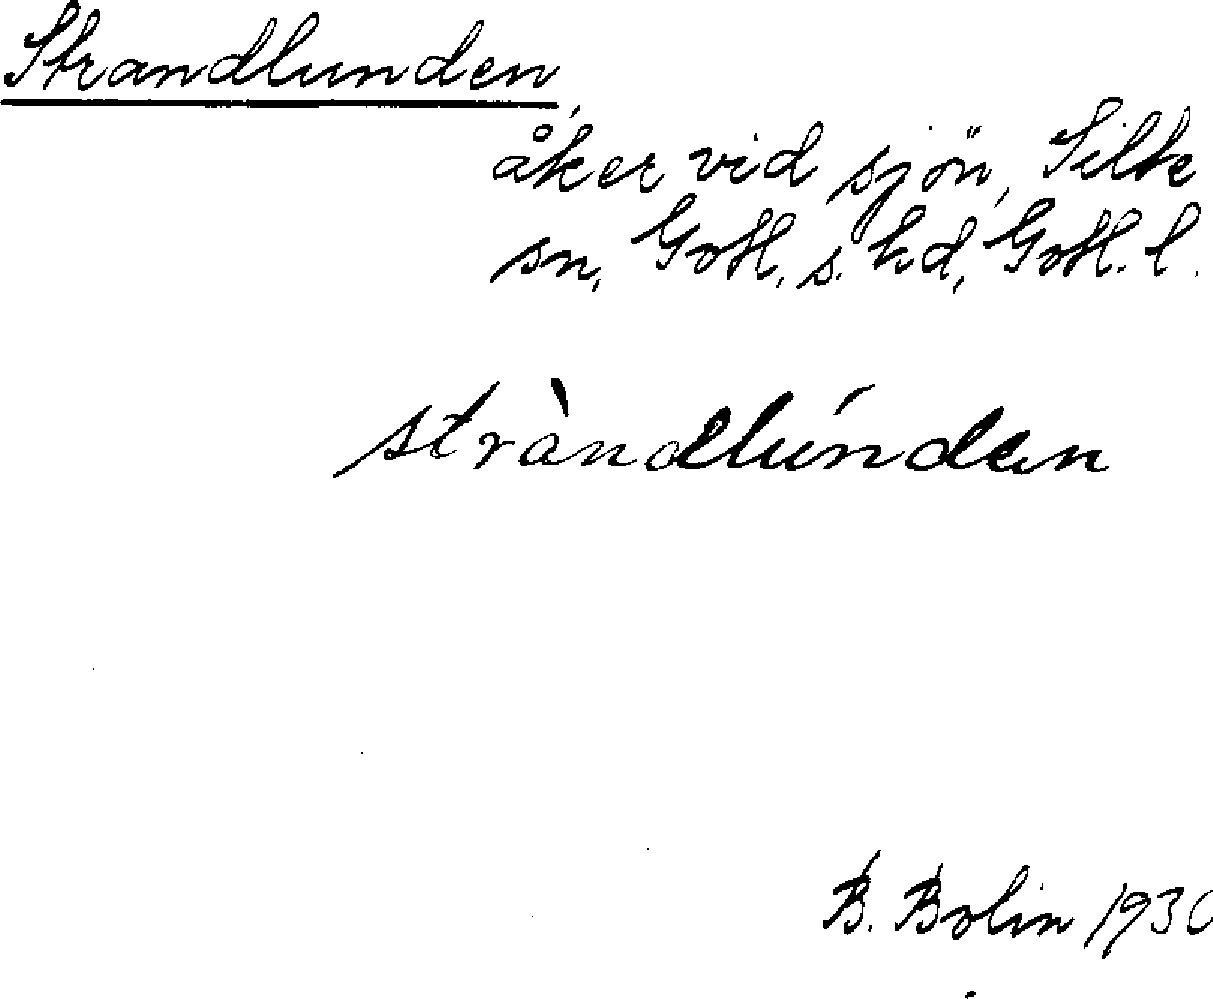 Strandlunden,
åker vid sjön, Silte
sn, Gotl. s. hd, Gotl. l.
stràndlúnden
B. Bolin 1930